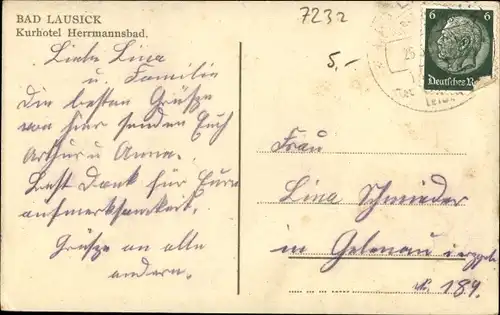 BAD LAUSICK
Kurhotel Herrmannsbad.
7232
5,-
6 6
Deutsches Reich
Liebe Lina
u Familie
Die besten Grüße
von hier senden Euch
Arthur u Anna.
Best Dank für Eure
aufmerksamkeit.
Grüße an alle
andern.
Frau
Lina Schmieder
in Gelenau i erzgeb
N. 184.